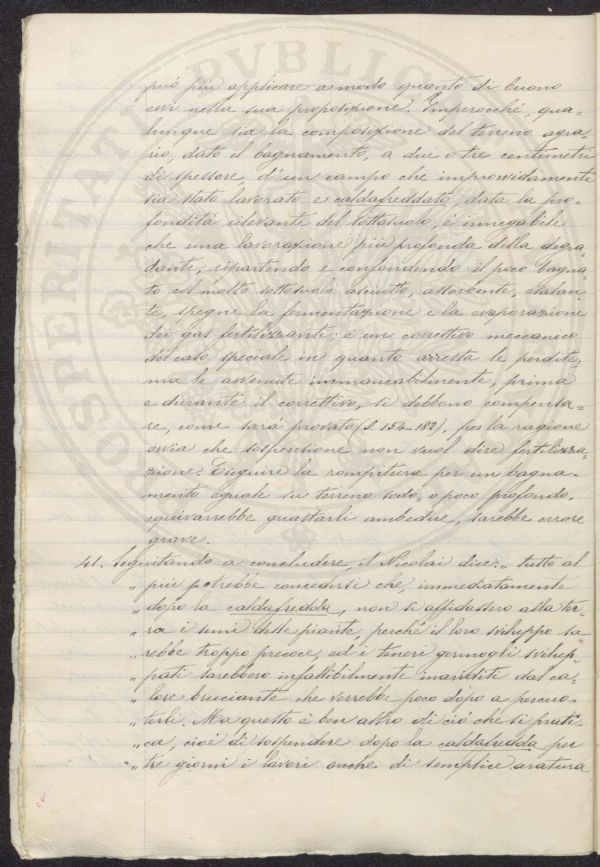 può più applicare a modo quanto di buono
evvi nella sua proposizione. Emperocché, qua-
lunque sia la composizione del terreno agra-
rio, dato il bagnamento, a due o tre centimetri
di spessore, d'un campo che improvvidamente
sia stato lavorato e caldafreddato, data la pro-
fondità rilevante del sottosuolo, è innegabile
che una lavorazione più profonda della degra-
dante, ripartendo e confondendo il poco bagna-
to col molto sottosuolo asciutto, assorbente, esalan-
te, spegne la fermentazione e la evaporazione
dei gas fertilizzanti; è un correttivo meccanico
del caso speciale in quanto arresta le perdite,
ma le avvenute immancabilmente, prima
e durante il correttivo, si debbono compensa-
re, come sarà provato (§. 154-182), per la ragione
ovvia che sospensione non vuol dire fertilizza-
zione. Eseguire la rompitura per un bagna-
mento eguale su terreno sodo, o poco profondo,
equivarrebbe guastarli ambedue, sarebbe errore
grave.
41. Seguitando a concludere, il Nicolai dice: „ tutto al
„ più potrebbe concedersi che, immediatamente
„ dopo la caldafredda, non si affidassero alla ter-
„ ra i semi delle piante, perché il loro sviluppo sa-
„ rebbe troppo precoce, ed i teneri germogli svilup-
„ pati sarebbero infallibilmente inariditi dal ca-
„ lore bruciante che verrebbe poco dopo a percuo-
„ terli. Ma questo è ben altro di ciò che si prati-
„ ca, cioè di sospendere dopo la caldafredda per
„ tre giorni i lavori anche di semplice aratura
PVBLIC
PROSPERITATI